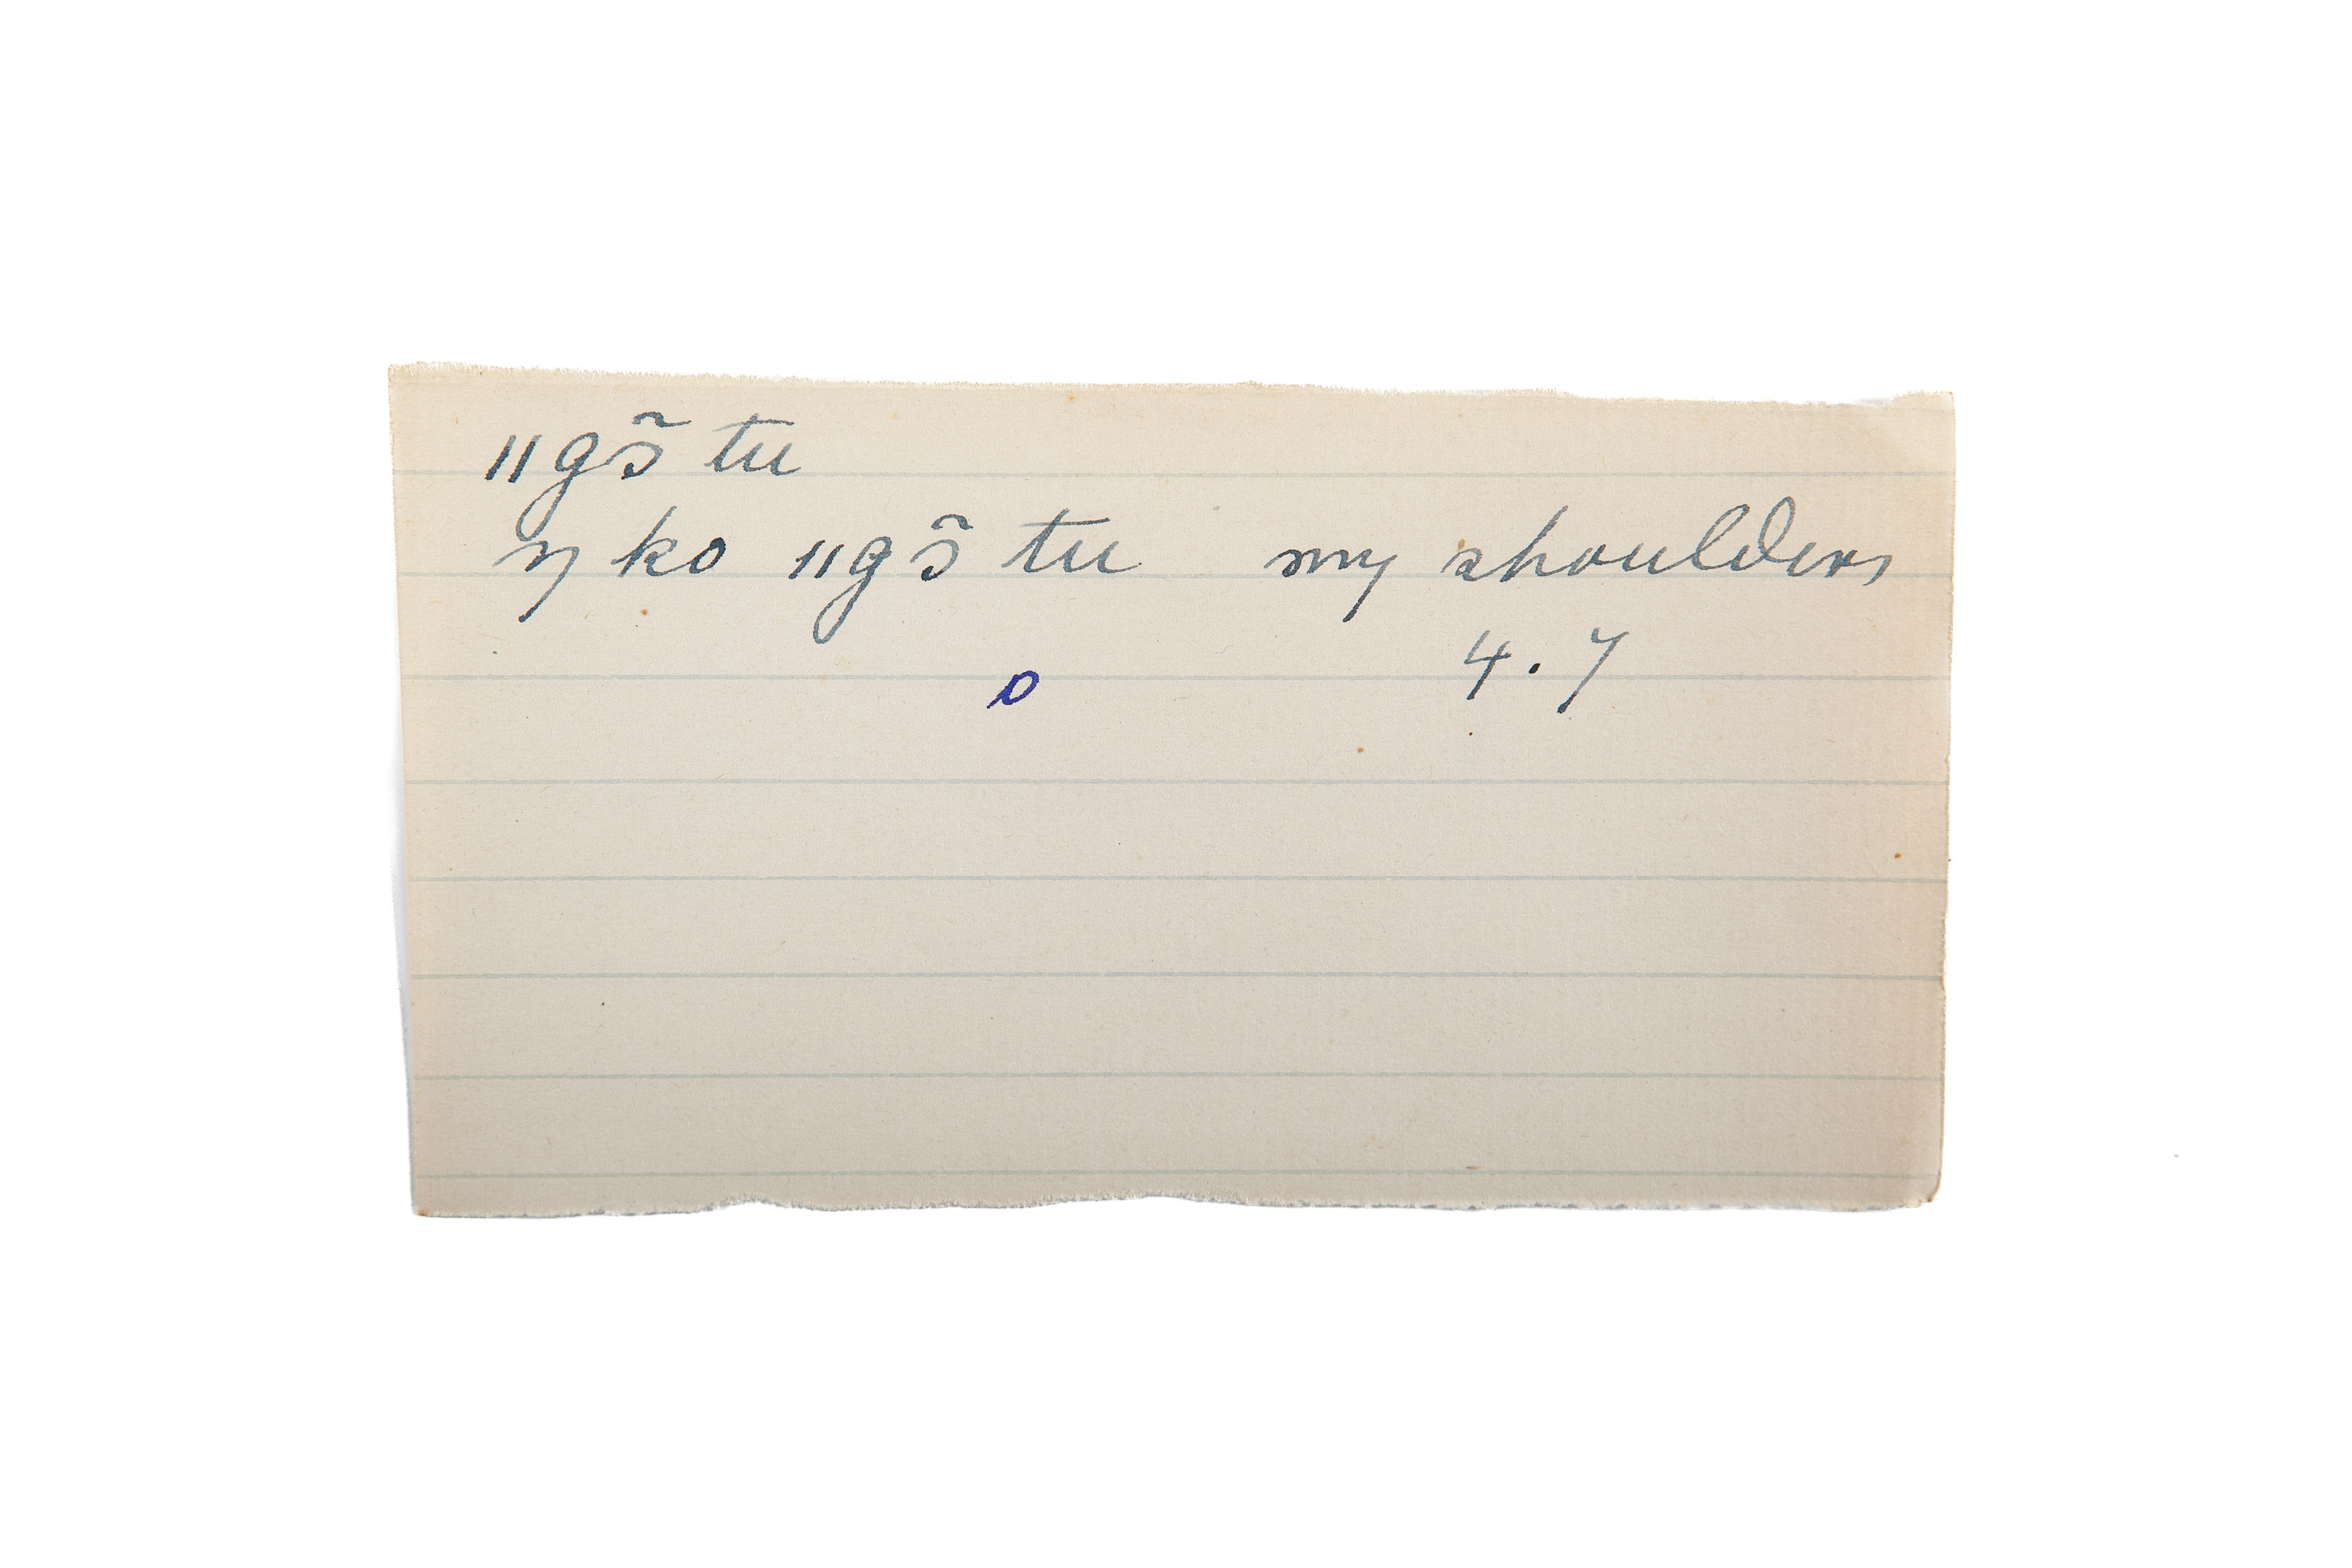 ǁgɔ̃ tu
ŋ ko ǁgɔ̃ tu my shoulders
4.7
o